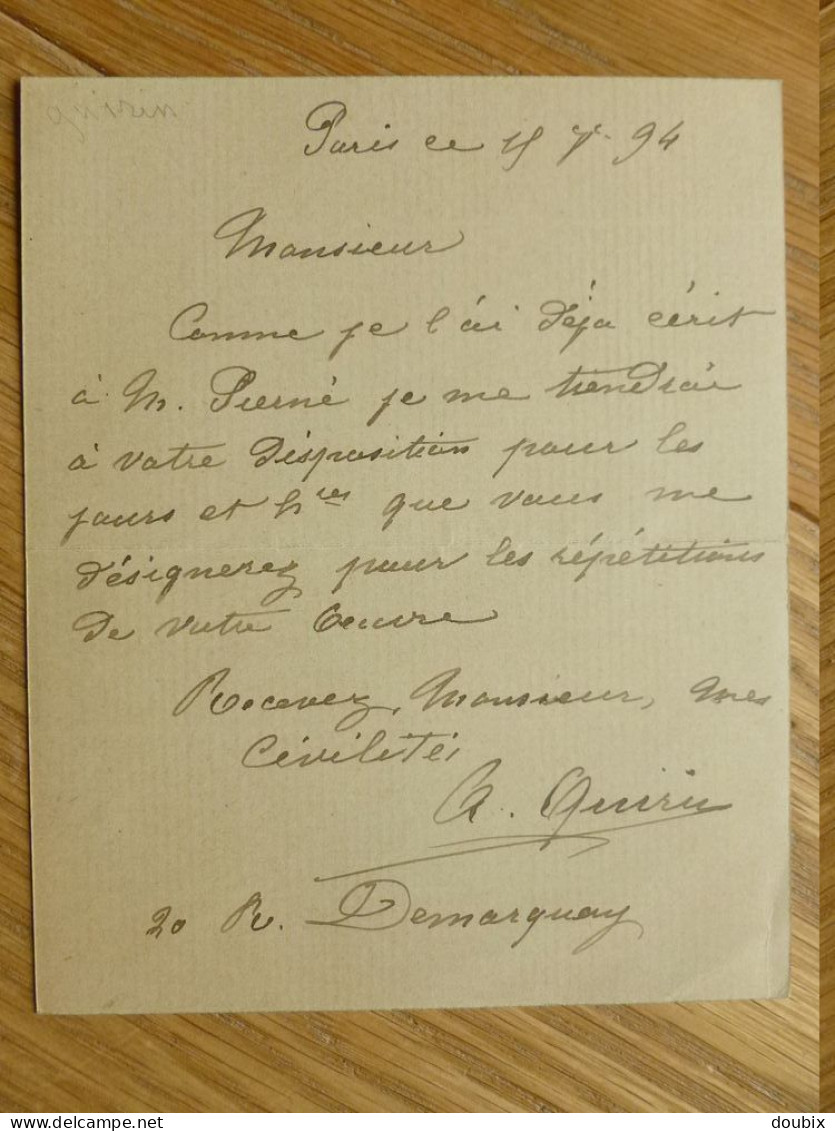 Paris ce 15 7re 94
Monsieur
Comme je l'ai déja écrit
à M. Pierné je me tiendrai
à votre disposition pour les
jours et hres que vous me
désignerez pour les répétitions
de votre Oeuvre
Recevez, Monsieur, mes
Civilités
A.
20 R. Demarquay
doubix